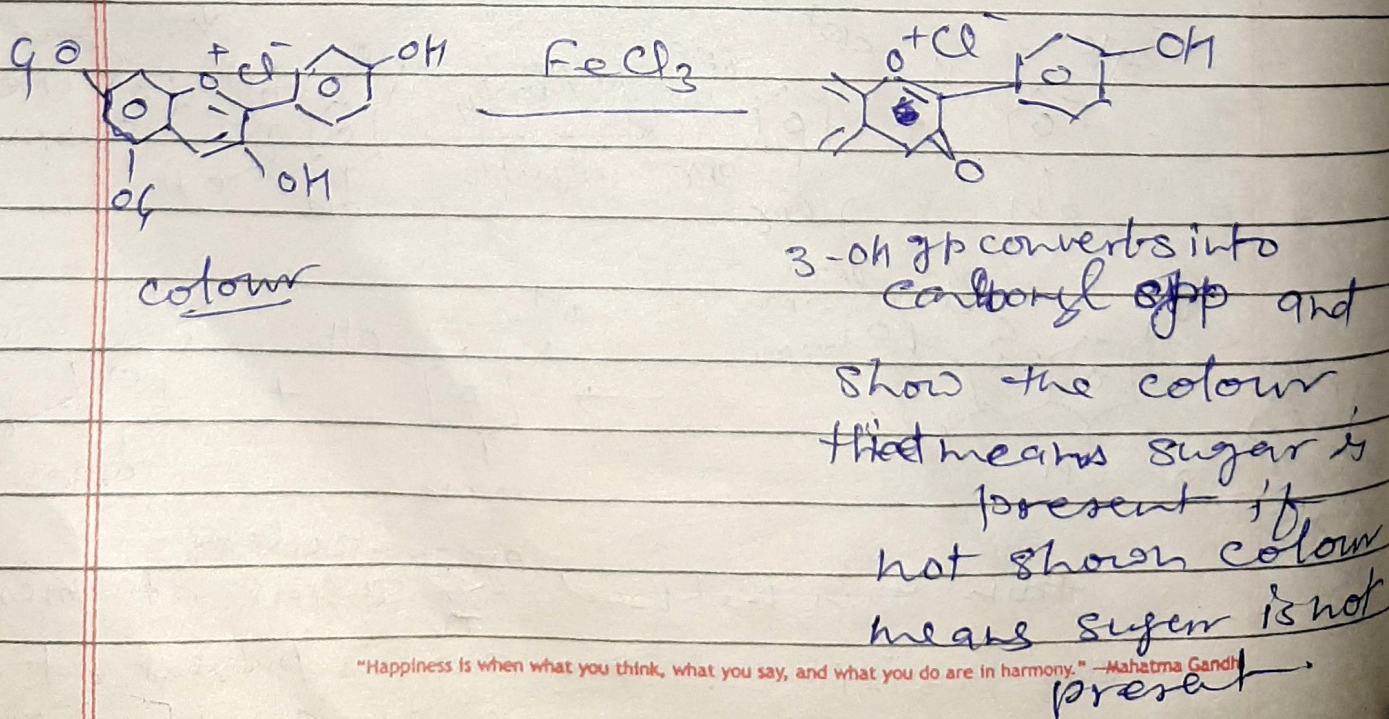 GO
+ Cl-
OH
FeCl3
O+Cl-
OH
O
OH
OG
O
3-OH gp converts into
colour
carbonyl gp and
show the colour
that means sugar is
present if
not shown colour
means sugar is not
"Happiness is when what you think, what you say, and what you do are in harmony." —Mahatma Gandhi
present